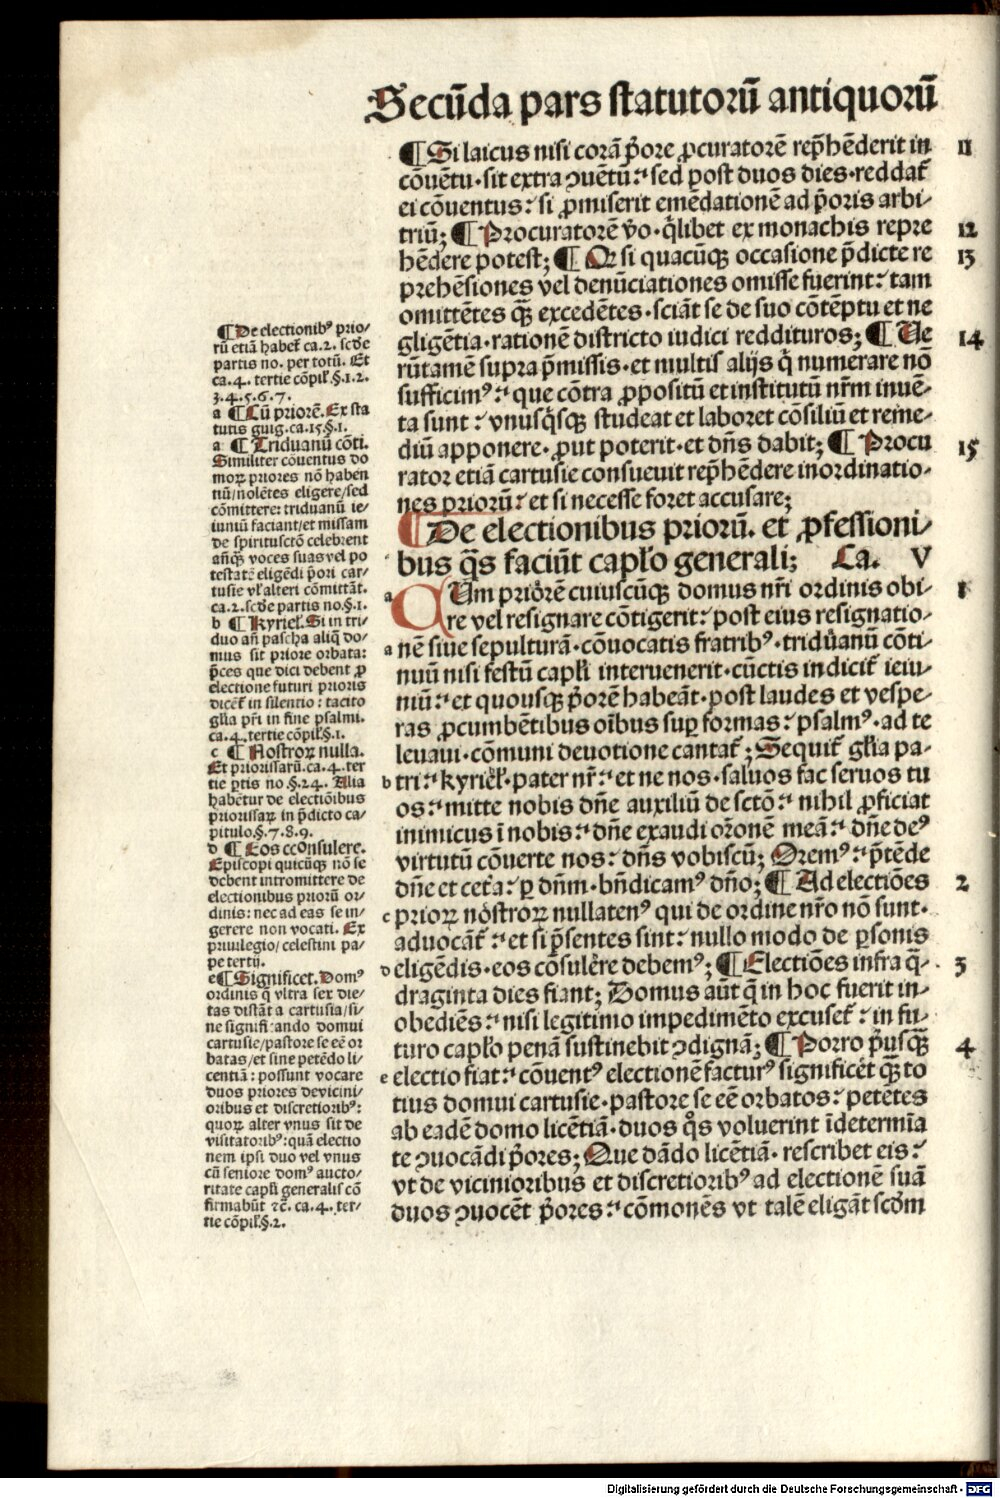 Secūda pars statutorū antiquorū
¶ Si laicus nisi corā p̄ore ꝓcuratorē rep̄hēderit in 11
cōuētu·sit extra ꝯuētū:' sed post duos dies·reddat̄
ei cōuentus:' si ꝓmiserit emēdationē ad p̄oris arbi/
triū; ¶ Procuratorē v̄o·q̄libet ex monachis repre 12
hēdere potest; ¶ Qꝛ si quacūqꝫ occasione p̄dicte re 13
prehēsiones vel denūciationes omisse fuerint:' tam
omittētes qꝫ̄ excedētes·sciāt se de suo cōtēptu et ne
gligētia·rationē districto iudici reddituros; ¶ Ue 14
rūtamē supra p̄missis·et multis alijs q̄ numerare nō
sufficimꝰ:' que cōtra ꝓpositū et institutū nr̄m inuē/
ta sunt:' vnusq̄sqꝫ studeat et laboret cōsiliū et reme/
diū apponere·ꝓut poterit·et dn̄s dabit; ¶ Procu 15
rator etiā cartusie consueuit rep̄hēdere inordinatio/
nes priorū:' et si necesse foret accusare;
¶ De electionibus priorū. et ꝓfessioni/
bus q̄s faciūt capl̄o generali; Ca. V
a CUm priorē cuiuscūqꝫ domus nr̄i ordinis obi/ 1
re vel resignare cōtigerit:' post eius resignatio/
a nē siue sepulturā·cōuocatis fratribꝰ·triduanū cōti/
nuū nisi festū capl̄i interuenerit·cūctis indicit̄ ieiu/
niū:' et quousqꝫ p̄orē habeāt·post laudes et vespe/
ras ꝓcumbētibus oībus suꝑ formas:' psalmꝰ·ad te
leuaui·cōmuni deuotione cantat̄; Sequit̄ gl̄ia pa/
b tri:' kyriel̄·pater nr̄:' et ne nos·saluos fac seruos tu
os:' mitte nobis dn̄e auxiliū de sctō:' nihil ꝓficiat
inimicus ī nobis:' dn̄e exaudi or̄onē meā:' dn̄e deꝰ
virtutū cōuerte nos:' dn̄s vobiscū; Oremꝰ:' p̄tēde
dn̄e et cet̄a:' ꝑ dn̄m·bn̄dicamꝰ dn̄o; ¶ Ad electiōes 2
c prioꝝ nostroꝝ nullatenꝰ qui de ordine nr̄o nō sunt·
aduocāt̄:' et si p̄sentes sint:' nullo modo de ꝑsonis
d eligēdis·eos cōsulere debemꝰ; ¶ Electiōes infra q̄· 3
draginta dies fiant; Domus aūt q̄ in hoc fuerit in/
obediēs:' nisi legitimo impedimēto excuset̄:' in fu/
turo capl̄o penā sustinebit ꝯdignā; ¶ Porro p̄usqꝫ̄ 4
e electio fiat:' cōuentꝰ electionē facturꝰ significet qꝫ̄ to
tius domui cartusie·pastore se eē orbatos:' petētes
ab eadē domo licētiā·duos q̄s voluerint īdetermīa
te ꝯuocādi p̄ores; Que dādo licētiā·rescribet eis:'
vt de vicinioribus et discretioribꝰ ad electionē suā
duos ꝯuocēt p̄ores:' cōmonēs vt talē eligāt scd̄m
¶ De electionibꝰ prio/
rū etiā habet̄ ca.2. scd̄e
partis no. per totū. Et
ca.4. tertie cōpil̄.§.1.2.
3.4.5.6.7.
a ¶ Cū priorē. Ex sta
tutis guig. ca.15.§.1.
a ¶ Triduanū cōti.
Similiter cōuentus do
moꝝ priores nō haben
tiū/nolētes eligere/sed
cōmittere: triduanū ie/
iuniū faciant/et missam
de spiritusctō celebrent
añqꝫ voces suas vel po
testatē eligēdi p̄ori car/
tusie vl̄ alteri cōmittāt.
ca.2. scd̄e partis no.§.1.
b ¶ Kyriel̄. Si in tri/
duo añ pascha aliq̄ do/
mus sit priore orbata:
p̄ces que dici debent ꝓ
electione futuri prioris
dicēt̄ in silentio: tacito
gl̄ia pr̄i in fine psalmi.
ca.4. tertie cōpil̄.§.1.
c ¶ Nostroꝝ nulla.
Et priorissarū. ca.4. ter
tie ꝑtis no.§.24. Alia
habētur de electiōibus
priorissaꝝ in p̄dicto ca/
pitulo.§.7.8.9.
d ¶ Eos cōnsulere.
Episcopi quicūqꝫ nō se
debent intromittere de
electionibus priorū or/
dinis: nec ad eas se in/
gerere non vocati. Ex
priuilegio/celestini pa/
pe tertij.
e ¶ Significet. Domꝰ
ordinis q̄ vltra sex die/
tas distāt a cartusia/si/
ne signifi:ando domui
cartusie/pastore se eē or
batas/et sine petēdo li/
centiā: possunt vocare
duos priores devicini/
oribus et discretioribꝰ:
quoꝝ alter vnus sit de
visitatoribꝰ: quā electio
nem ipsi duo vel vnus
cū seniore domꝰ aucto/
ritate capl̄i generalis cō
firmabūt ⁊c̄. ca.4. ter/
tie cōpil̄.§.2.
Digitalisierung gefördert durch die Deutsche Forschungsgemeinschaft - DFG